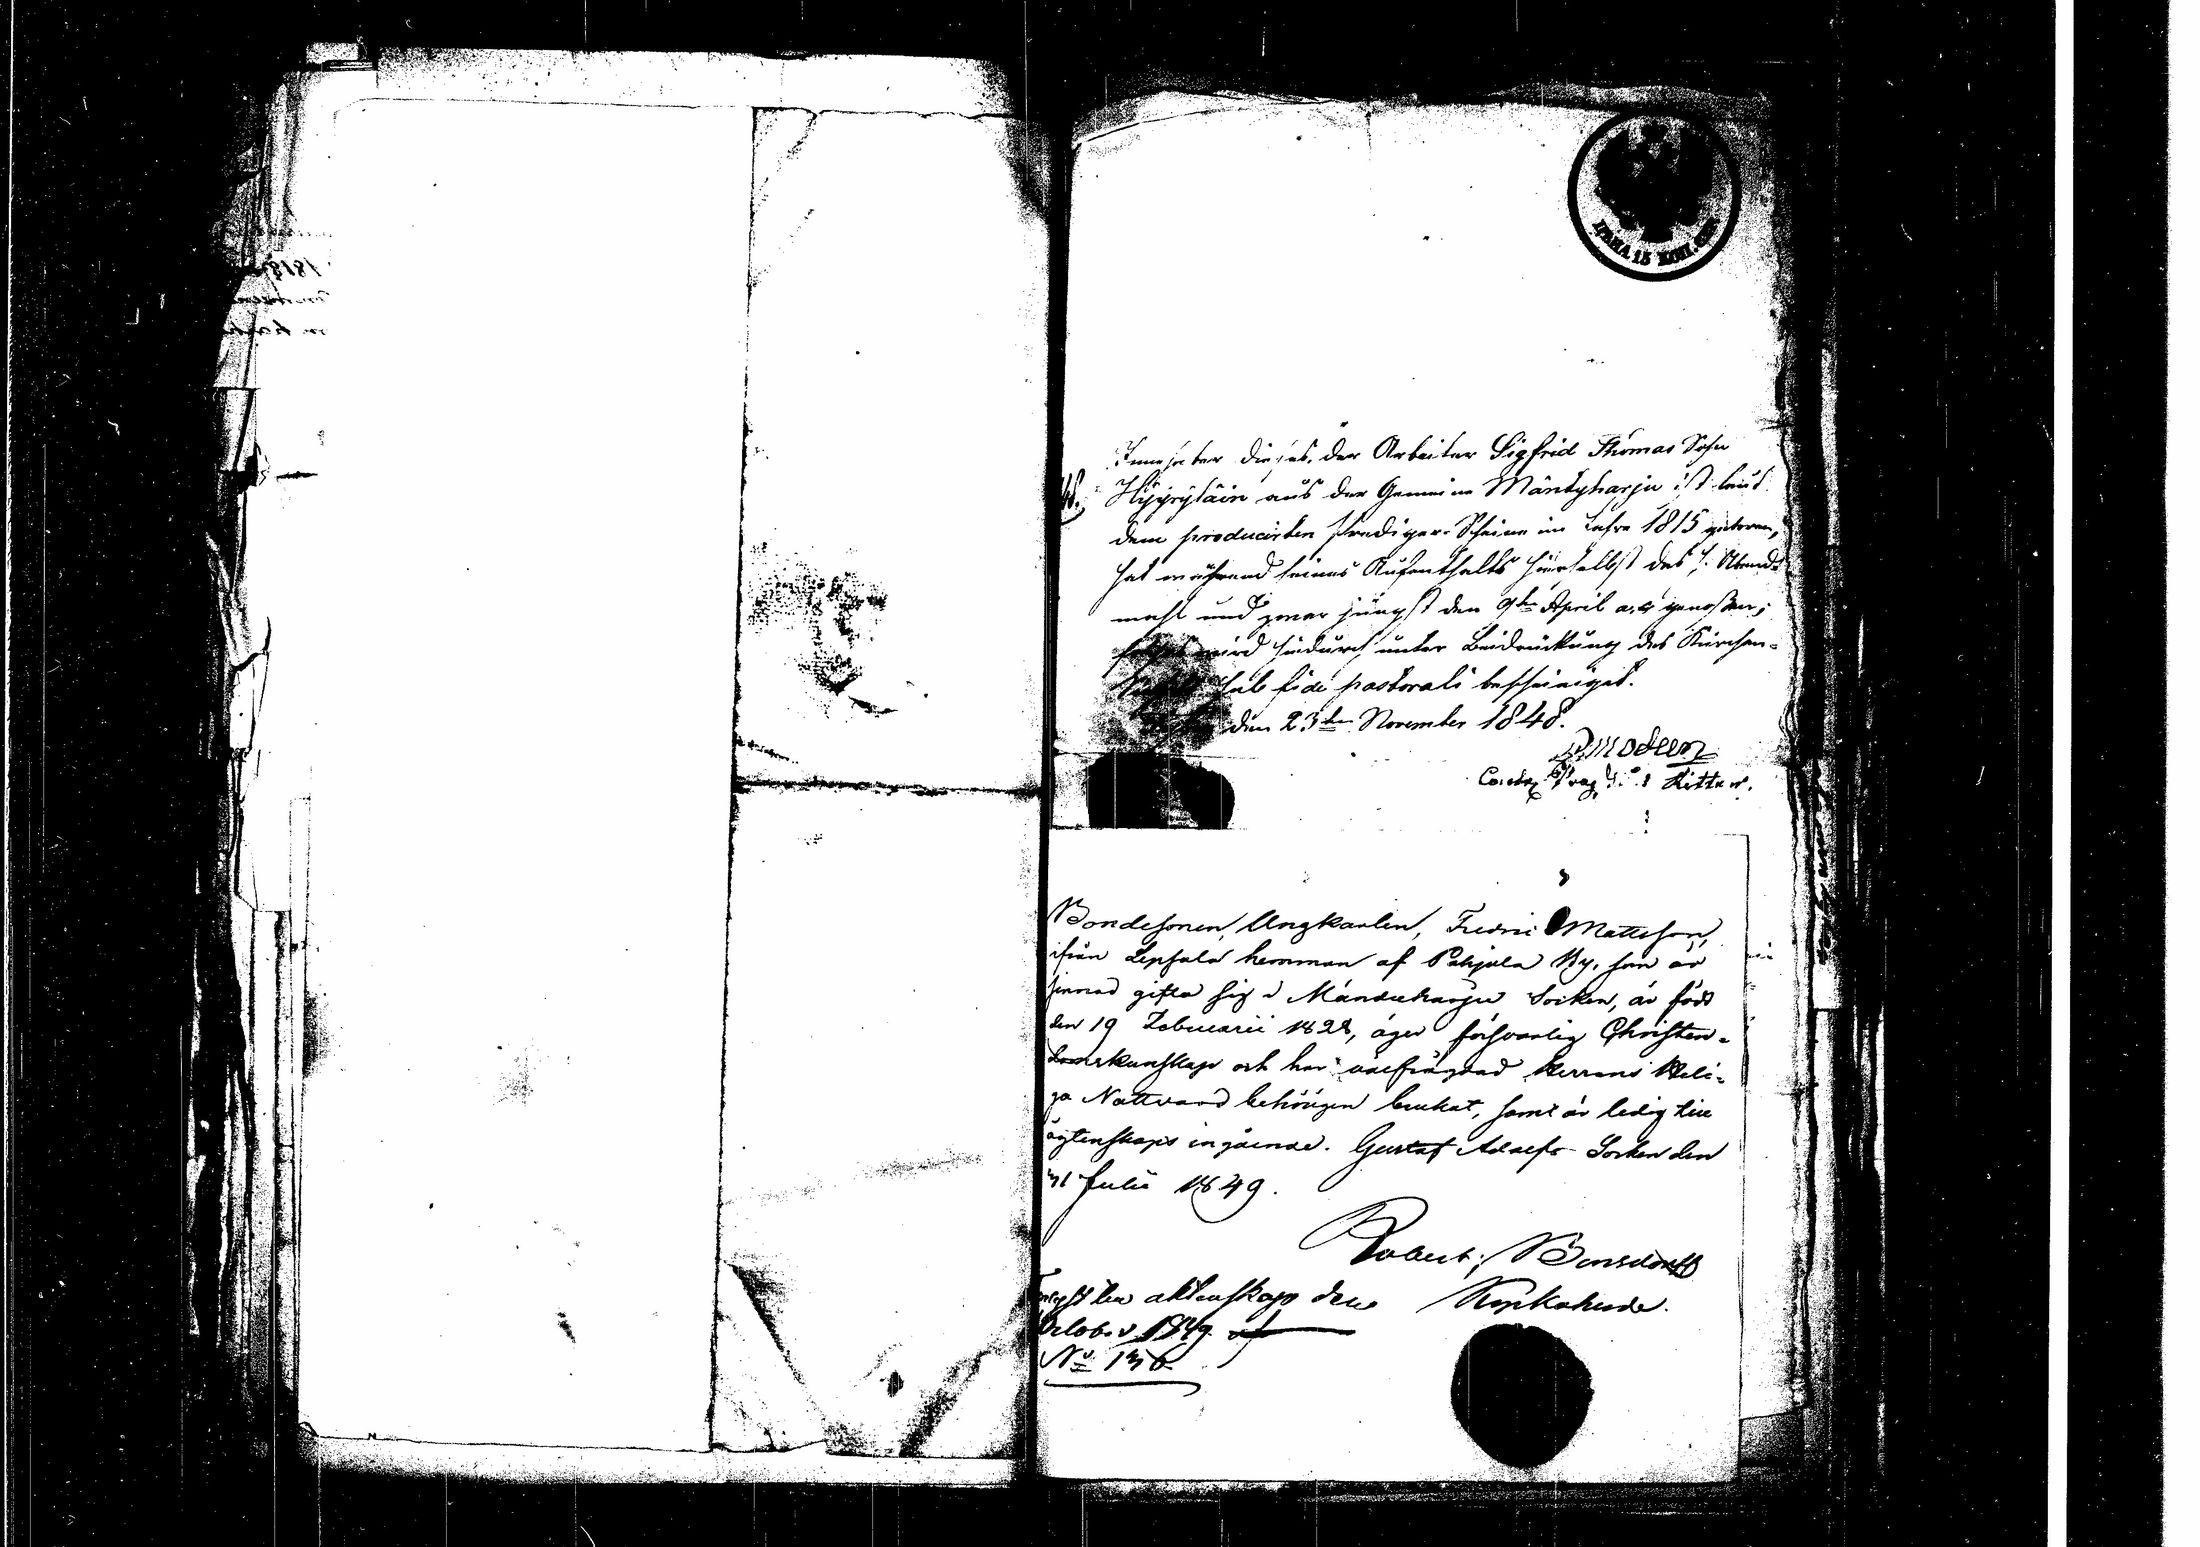 ЦѢНА 15 КОП. СЕР.
Innhaber dieses, der Arbeiter Sigfrid Thomas Sohn
Hÿÿrÿläin aus der Gemeine Mändyharju ist laut
dem producirten Prediger-Scheine im Jahre 1815 geboren,
hat während seines Aufenthalts hierselbst das h. Abend-
mahl und zwar jüngst den 9ten April a. c. genoßen;
solches wird hiedurch unter Beidrückung des Kirchen-
sub fide pastorali bescheiniget.
den 23ten November 1848.
Ritter.
Bondesonen, Ungkarlen, Fredric Mattsson,
ifrån Lepsala hemman af Pohjola By, som är
sinnad gifta sig i Mänduharju Socken, är född
den 19 Februarii 1828, äger försvarlig Christen-
domskunskap och har oaefvägdad Herrans Heli-
ga Nattvard behörigen brukat, samt är ledig till
ägtenskaps ingående. Gustaf Adolfs Socken den
31 Julii 1849.
Robert; Bonsdorff
Kyrkoherde.
äktenskap den
October 1849
No 136